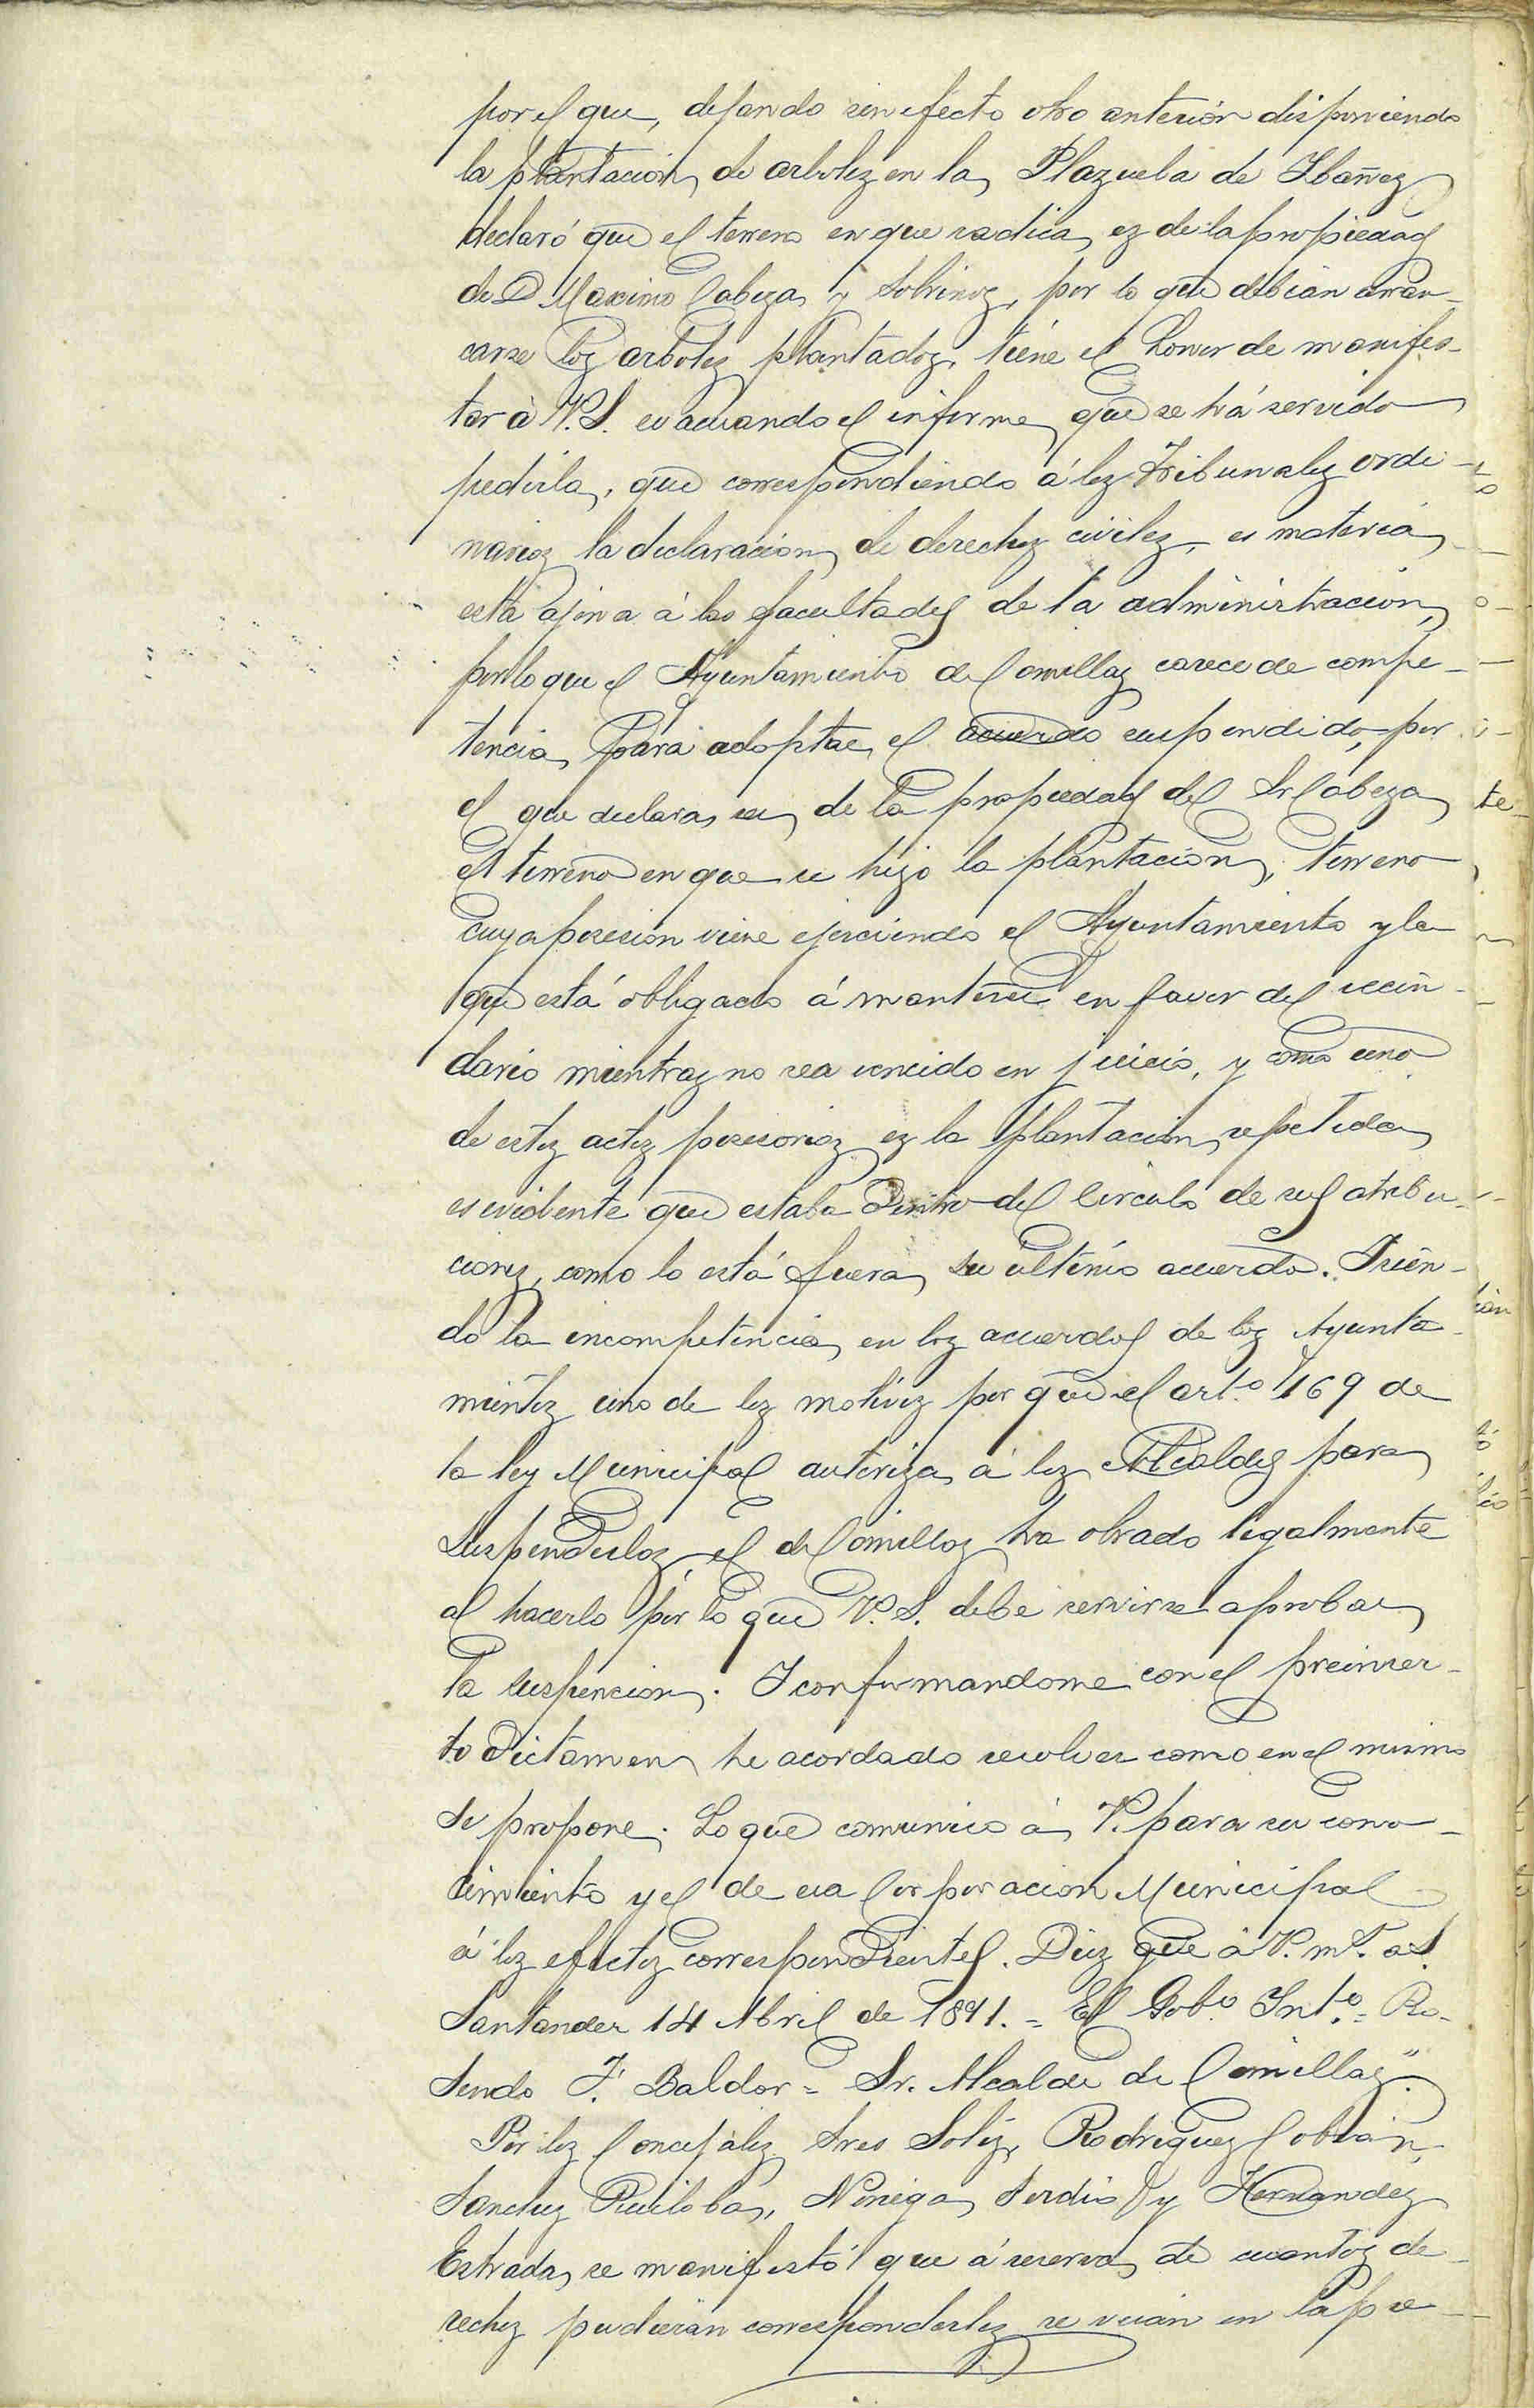 por el que, dejando sin efecto otro anterior disponiendo
la plantacion de arboles en la Plazuela de Ibañez
declaró que el terreno en que radica es de la propiedad
de D Maximo Cabeza y Sobrinos, por lo que debian arran-
carse los arboles plantados, tiene el honor de manifes-
tar à V.S. evacuando el informe que se há servido
pedirla, que correspondiendo á los Tribunales ordi-
narios la declaracion de derechos civiles, es materia
esta ajena á las facultades de la administracion,
por lo que el Ayuntamiento de Comillas carece de compe-
tencia para adoptar el acuerdo suspendido, por
el que declara ser de la propiedad del Sr Cabeza
el terreno en que se hizo la plantacion, terreno
cuya posesion viene ejerciendo el Ayuntamiento y la
que está obligado á mantener en favor del vecin-
dario mientras no sea vencido en juicio, y como uno
de estos actos posesorios es la plantacion repetida
es evidente que estaba dentro del circulo de sus atribu-
ciones, como lo está fuera su ultimo acuerdo. Sien-
do la incompetencia en los acuerdos de los Ayunta-
mientos uno de los motivos por que el art.o 169 de
la ley Municipal autoriza á los Alcaldes para
suspenderlos, el de Comillas ha obrado legalmente
al hacerlo por lo que V.S. debe servirse aprobar
la suspencion. Y conformandome con el preinser-
to dictamen he acordado resolver como en el mismo
se propone. Lo que comunico á V. para su cono-
cimiento y el de esa Corporacion Municipal
á los efectos correspondientes. Dios gue á V. m.s a.s
Santander 14 Abril de 1891. = El Gob.o Int.o = Ro-
sendo F. Baldor = Sr. Alcalde de Comillas".
Por los Concejales Sres Solis, Rodriguez Cobian,
Sanchez Ruiloba, Noriega Serdio y Hernandez
Estrada, se manifestó que á reserva de cuantos de-
rechos pudieran corresponderles se veian en la pre-